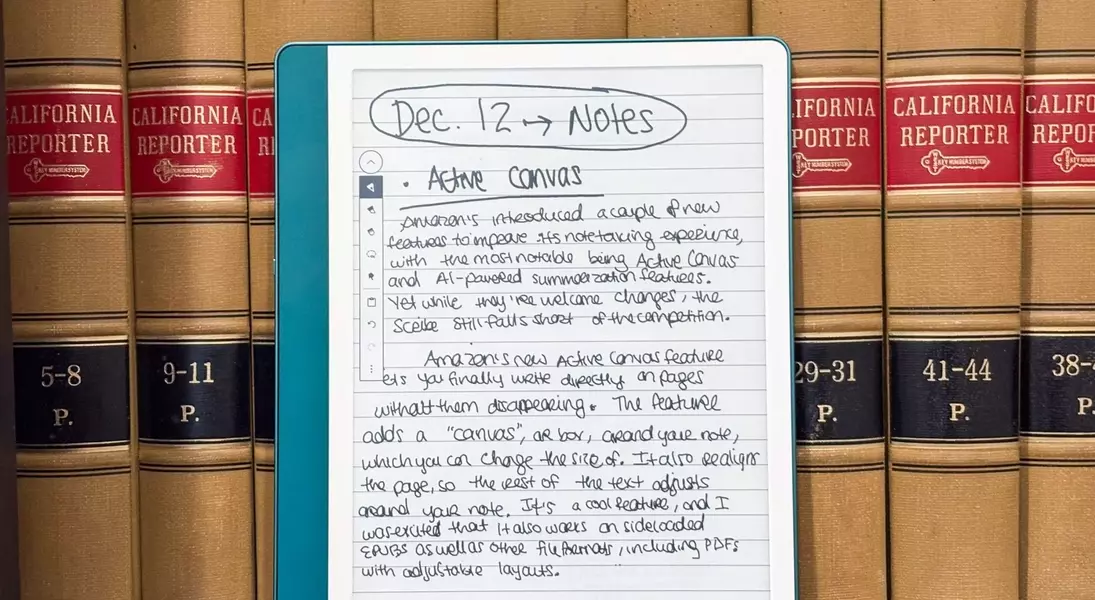 CALIFORNIA
REPORTER
KEY NUMBER SYSTEM
5-8
P.
CALIFORNIA
REPORTER
KEY NUMBER SYSTEM
9-11
P.
CA
R
Dec. 12 → Notes
• Active Canvas
Amazon's introduced a couple of new
features to improve its note taking experience,
with the most notable being Active Canvas
and AI-powered summarization features.
Yet while they're welcome changes, the
Scribe still falls short of the competition.
Amazon's new Active Canvas feature
ets you finally write directly on pages
without them disappearing. The feature
adds a "canvas", or box, around your note,
which you can change the size of. It also realigns
the page, so the rest of the text adjusts
around your note. It's a cool feature, and I
was excited that it also works on sideloaded
EPUBs as well as other file formats, including PDFs
with adjustable layouts.
IFORNIA
PORTER
KEY NUMBER SYSTEM
29-31
P.
CALIFORNIA
REPORTER
KEY NUMBER SYSTEM
41-44
P.
CALIFO
REPO
38-
P.